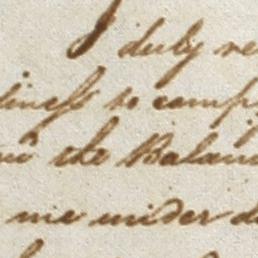 I duly re
diness to comp
the Balan
me under d